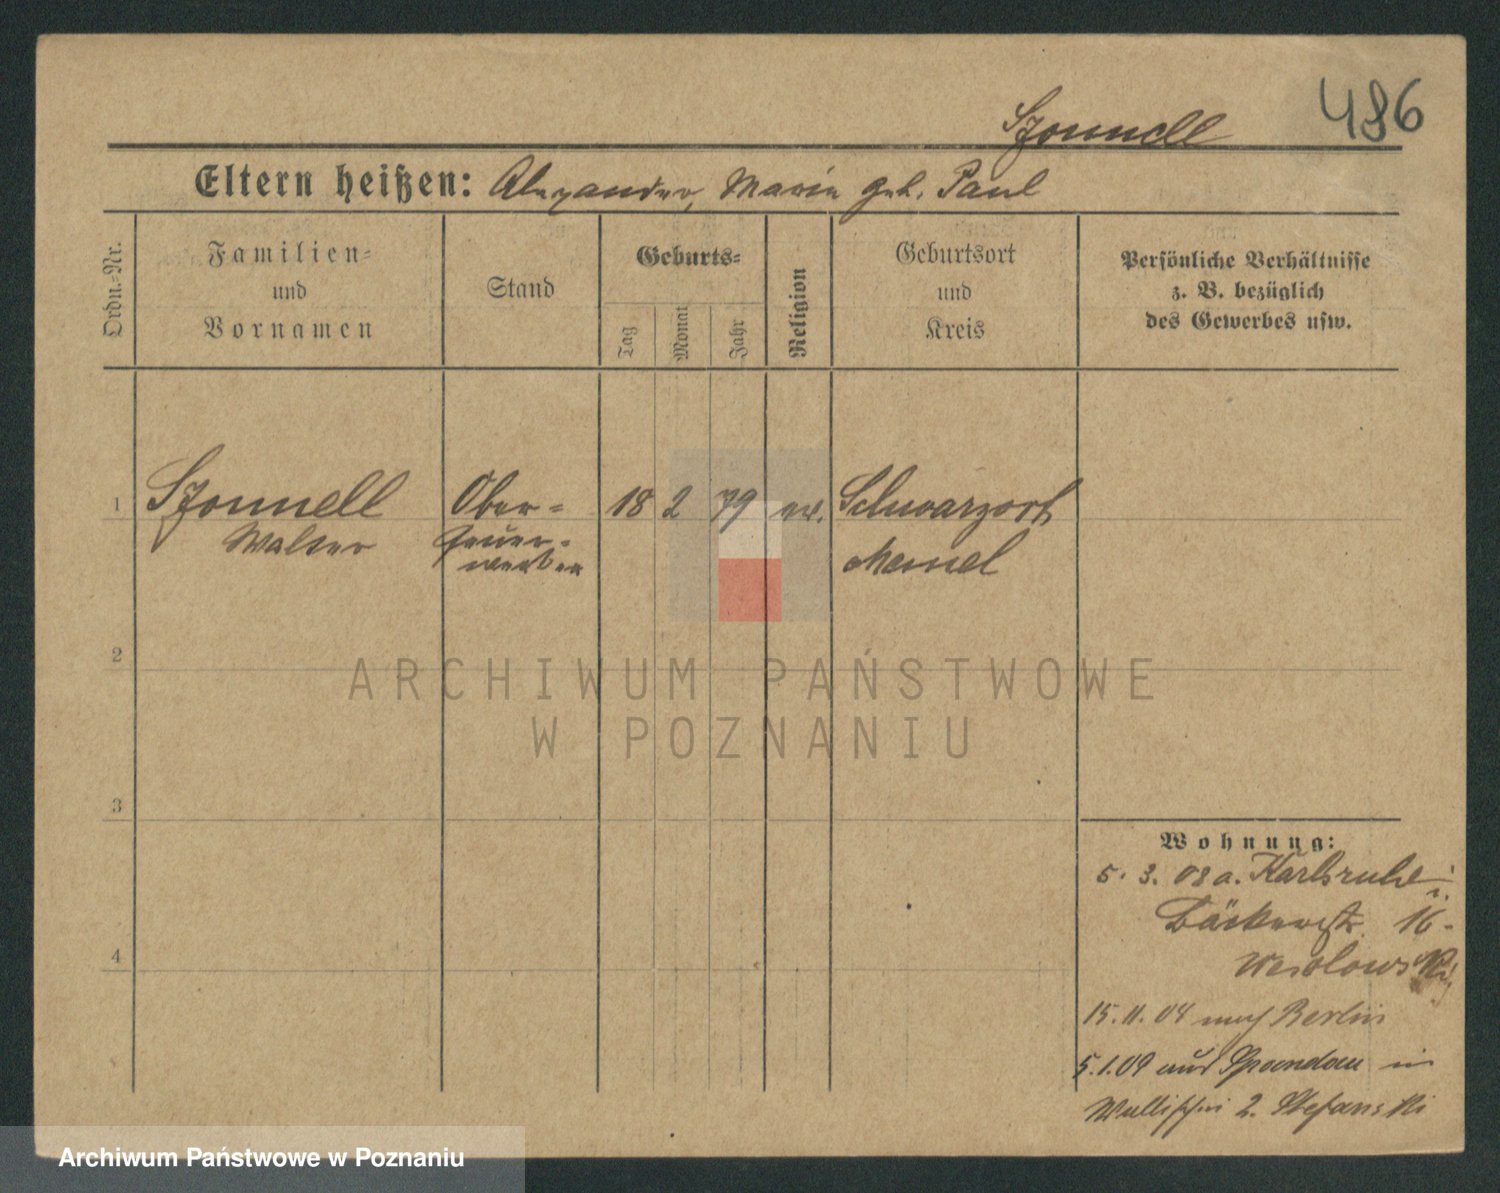 486
Szonnell
Eltern heißen: Alexander, Maria geb. Paul
Ordn.-Nr.
Familien-
und
Vornamen
Stand
Geburts-
Tag
Monat
Jahr
Religion
Geburtsort
und
Kreis
Persönliche Verhältnisse
z. B. bezüglich
des Gewerbes usw.
1
Szonnell
Walter
Ober-
feuer-
werker
18 2 79 ev.
Schwarzort
Memel
2
ARCHIWUM PAŃSTWOWE
W POZNANIU
3
4
Wohnung:
5. 3. 08 a. Karlsruhe i.
Bäckerstr. 16
Wesolowski
15.11.04 nach Berlin
5.1.09 aus Spandau in
2. Stefanski
Archiwum Państwowe w Poznaniu